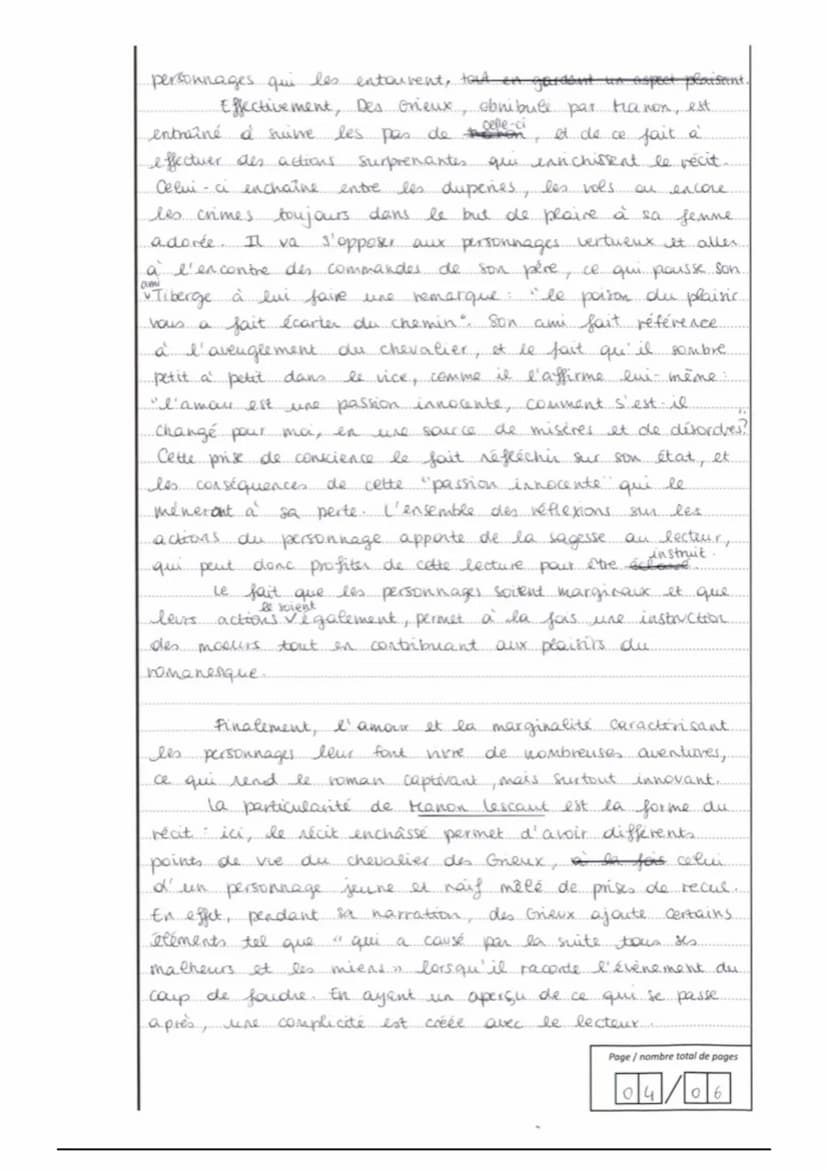 personnages qui les entourent, tout en gardant un aspect plaisant.
Effectivement, Des Grieux, obnibulé par Manon, est
entraîné à suivre les pas de celle-ci, et de ce fait à
effectuer des actions surprenantes qui enrichissent le récit.
Celui-ci enchaîne entre les duperies, les vols ou encore
les crimes toujours dans le but de plaire à sa femme
adorée. Il va s'opposer aux personnages vertueux et aller
à l'encontre des commandes de son père, ce qui pousse son
ami
Tiberge à lui faire une remarque : "le poison du plaisir
vous a fait écarter du chemin". Son ami fait référence
à l'aveuglement du chevalier, et le fait qu'il sombre
petit à petit dans le vice, comme il l'affirme lui-même :
"l'amour est une passion innocente, comment s'est-il
changé pour moi, en une source de misères et de désordres?"
Cette prise de conscience le fait réfléchir sur son état, et
les conséquences de cette "passion innocente" qui le
mèneront à sa perte. L'ensemble des réflexions sur les
actions du personnage apporte de la sagesse au lecteur,
qui peut donc profiter de cette lecture pour être instruit.
Le fait que les personnages soient marginaux et que
leurs actions le soient également, permet à la fois une instruction
des moeurs tout en contribuant aux plaisirs du
romanesque.
Finalement, l'amour et la marginalité caractérisant
les personnages leur font vivre de nombreuses aventures,
ce qui rend le roman captivant, mais surtout innovant.
La particularité de Manon Lescaut est la forme du
récit : ici, le récit enchâssé permet d'avoir différents
points de vue du chevalier des Grieux, à la fois celui
d'un personnage jeune et naïf mêlé de prises de recul.
En effet, pendant sa narration, des Grieux ajoute certains
éléments tel que "qui a causé par la suite tous ses
malheurs et les miens" lorsqu'il raconte l'évènement du
coup de foudre. En ayant un aperçu de ce qui se passe
après, une complicité est créée avec le lecteur.
Page / nombre total de pages
04/06